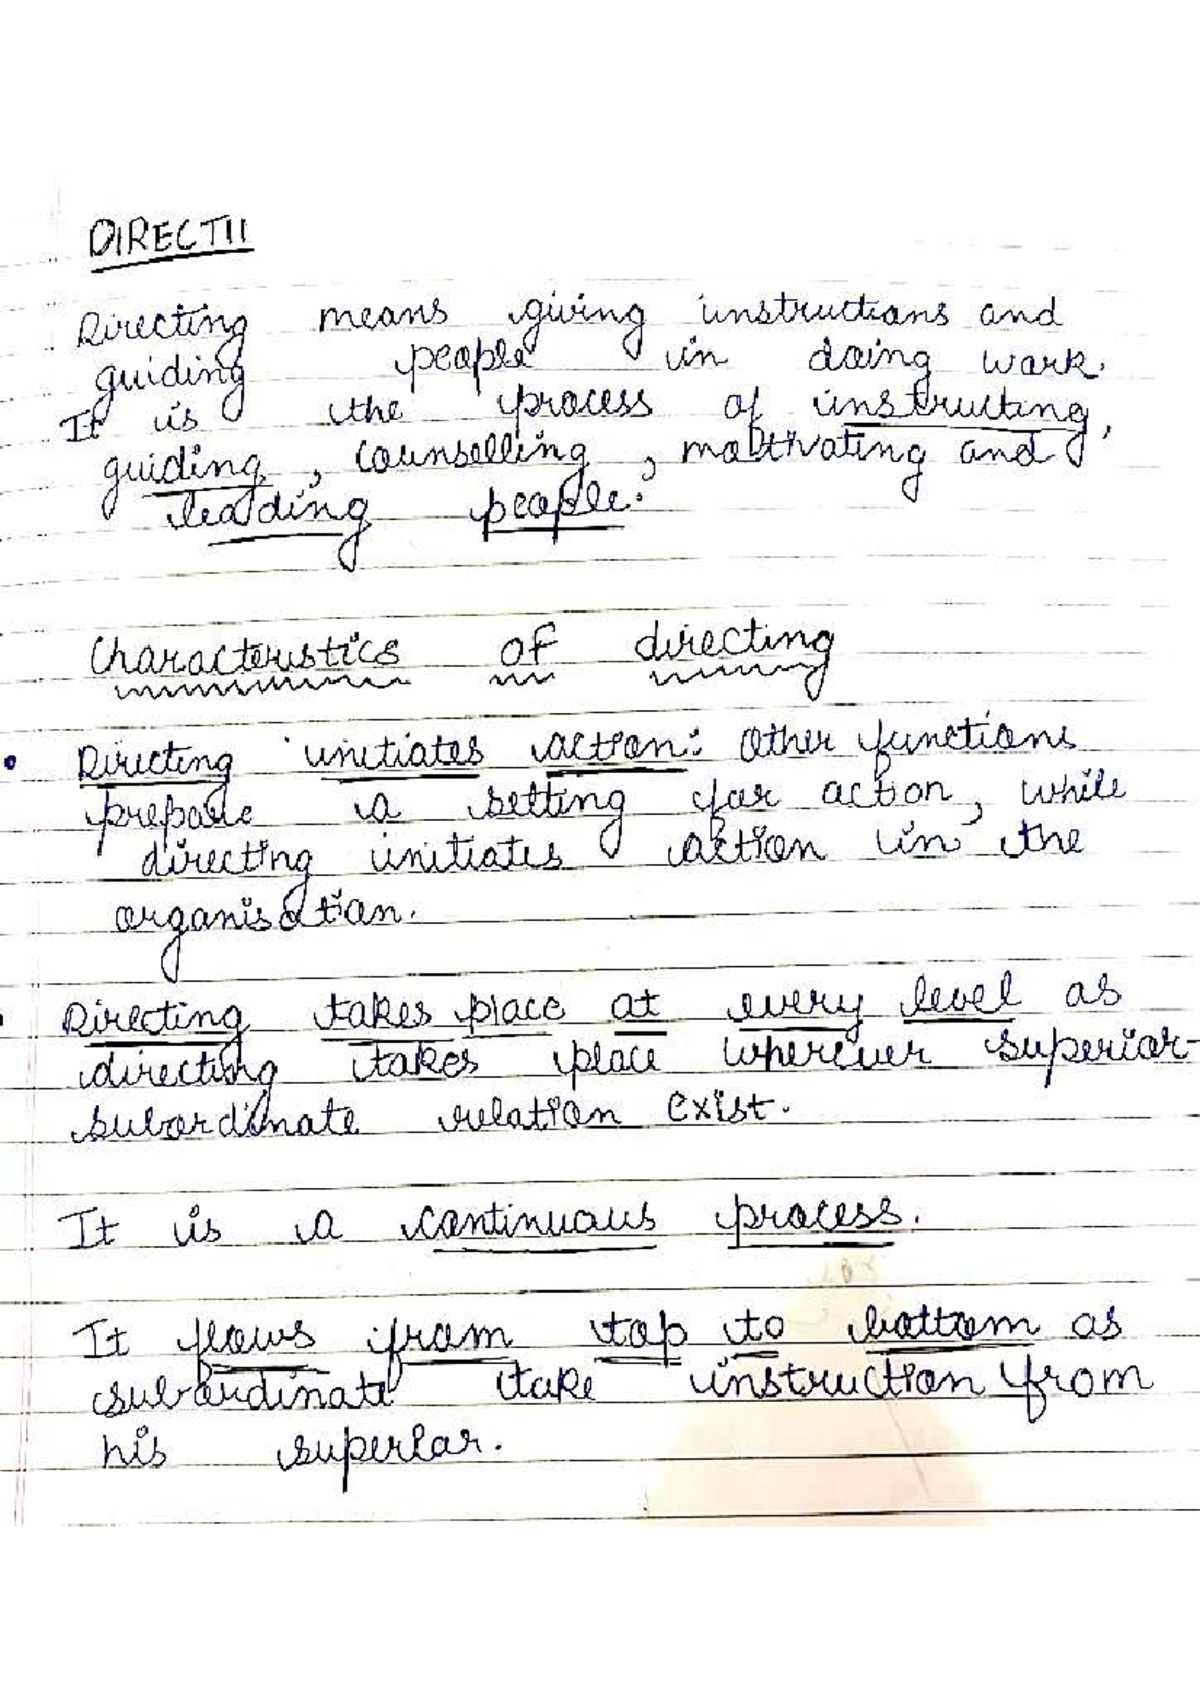 DIRECTII
Directing means giving instructions and
guiding people in doing work.
It is the process of instructing,
guiding, counselling, motivating and
leading people.
Characteristics of directing
• Directing initiates action: Other functions
prepare a setting for action, while
directing initiates action in the
organisation.
• Directing takes place at every level as
directing takes place wherever superior-
subordinate relation exist.
It is a continuous process.
It flows from top to bottom as
subordinate take instruction from
his superior.